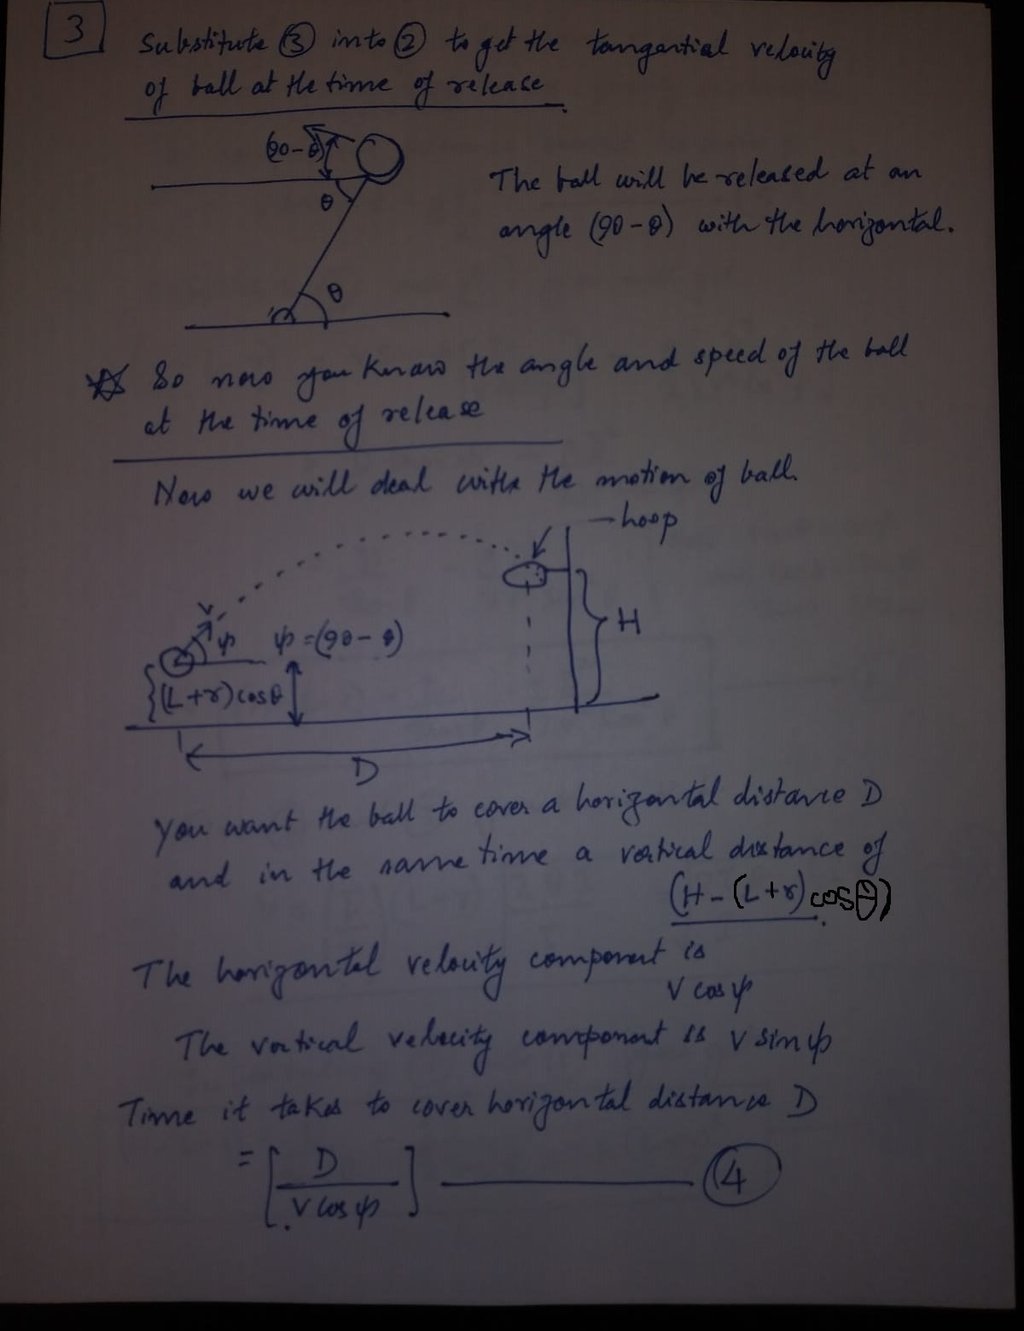 3
Substitute ③ into ② to get the tangential velocity
of ball at the time of release
(90-θ)
θ
The ball will be released at an
angle (90-θ) with the horizontal.
θ
So now you know the angle and speed of the ball
at the time of release
Now we will deal with the motion of ball.
hoop
v
ψ
ψ = (90-θ)
H
(L+r)cosθ
D
You want the ball to cover a horizontal distance D
and in the same time a vertical distance of
(H-(L+r)cosθ)
The horizontal velocity component is
V cos ψ
The vertical velocity component is V sin ψ
Time it takes to cover horizontal distance D
= [D / V cos ψ] ④